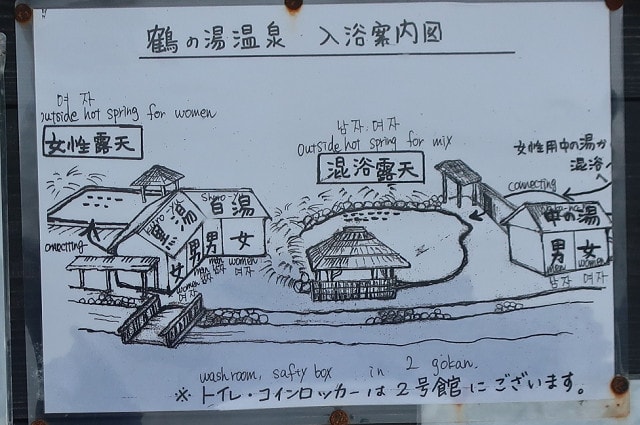 鶴の湯温泉 入浴案内図
여자
outside hot spring for women
女性露天
남자 여자
outside hot spring for mix
混浴露天
女性用中の湯か
混浴へ
connecting
connecting
黒湯
Shiro
白湯
中の湯
女 男 男 女
women men men women
여자 남자 남자 여자
男 女
men women
남자 여자
washroom, safty box in 2 gōkan.
※トイレ・コインロッカーは2号館にございます。